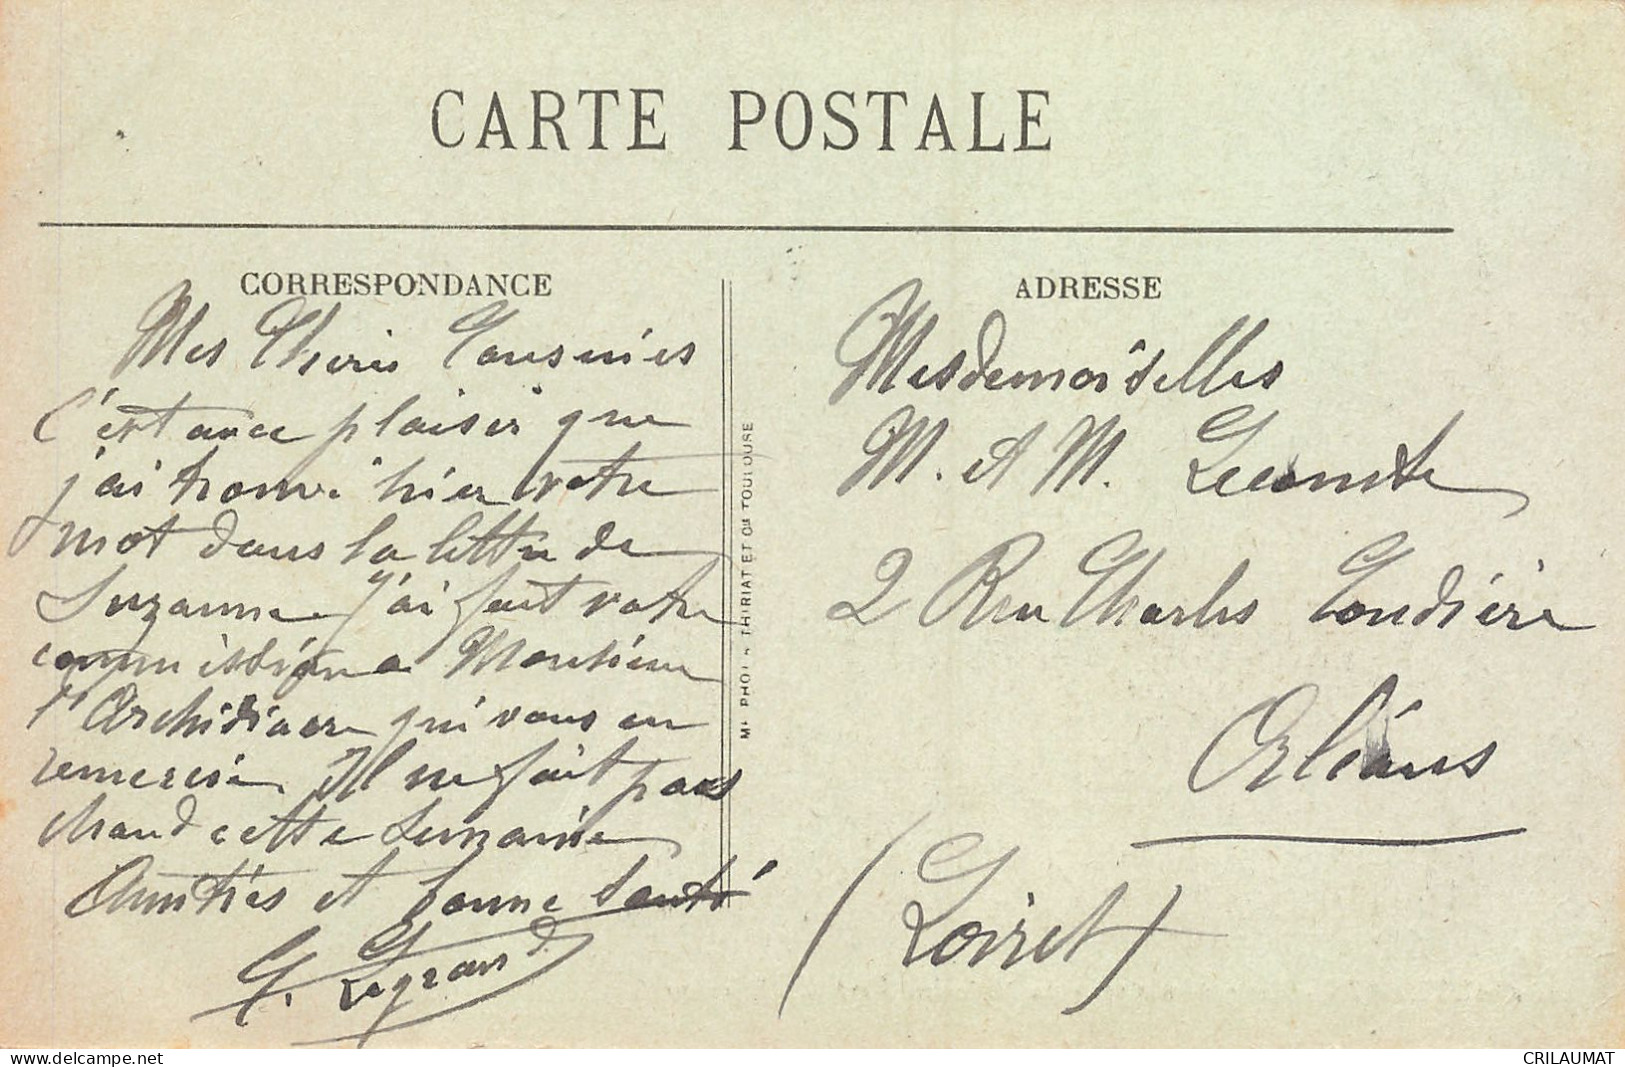 CARTE POSTALE
CORRESPONDANCE
Mes Cheris Cousines
C'est avec plaisir que
j'ai trouvé hier votre
mot dans la lettre de
Suzanne. J'ai fait votre
commission a Monsieur
l'Archidiacre qui vous en
remercie. Il ne fait pas
chaud cette semaine
Amitiés et bonne Santé
G. Legrand
PHOT THIRIAT ET Cie TOULOUSE
ADRESSE
Mesdemoiselles
M. et M. Lecomte
2 Rue Charles Coudière
Orléans
(Loiret)
delcampe.net
CRILAUMAT